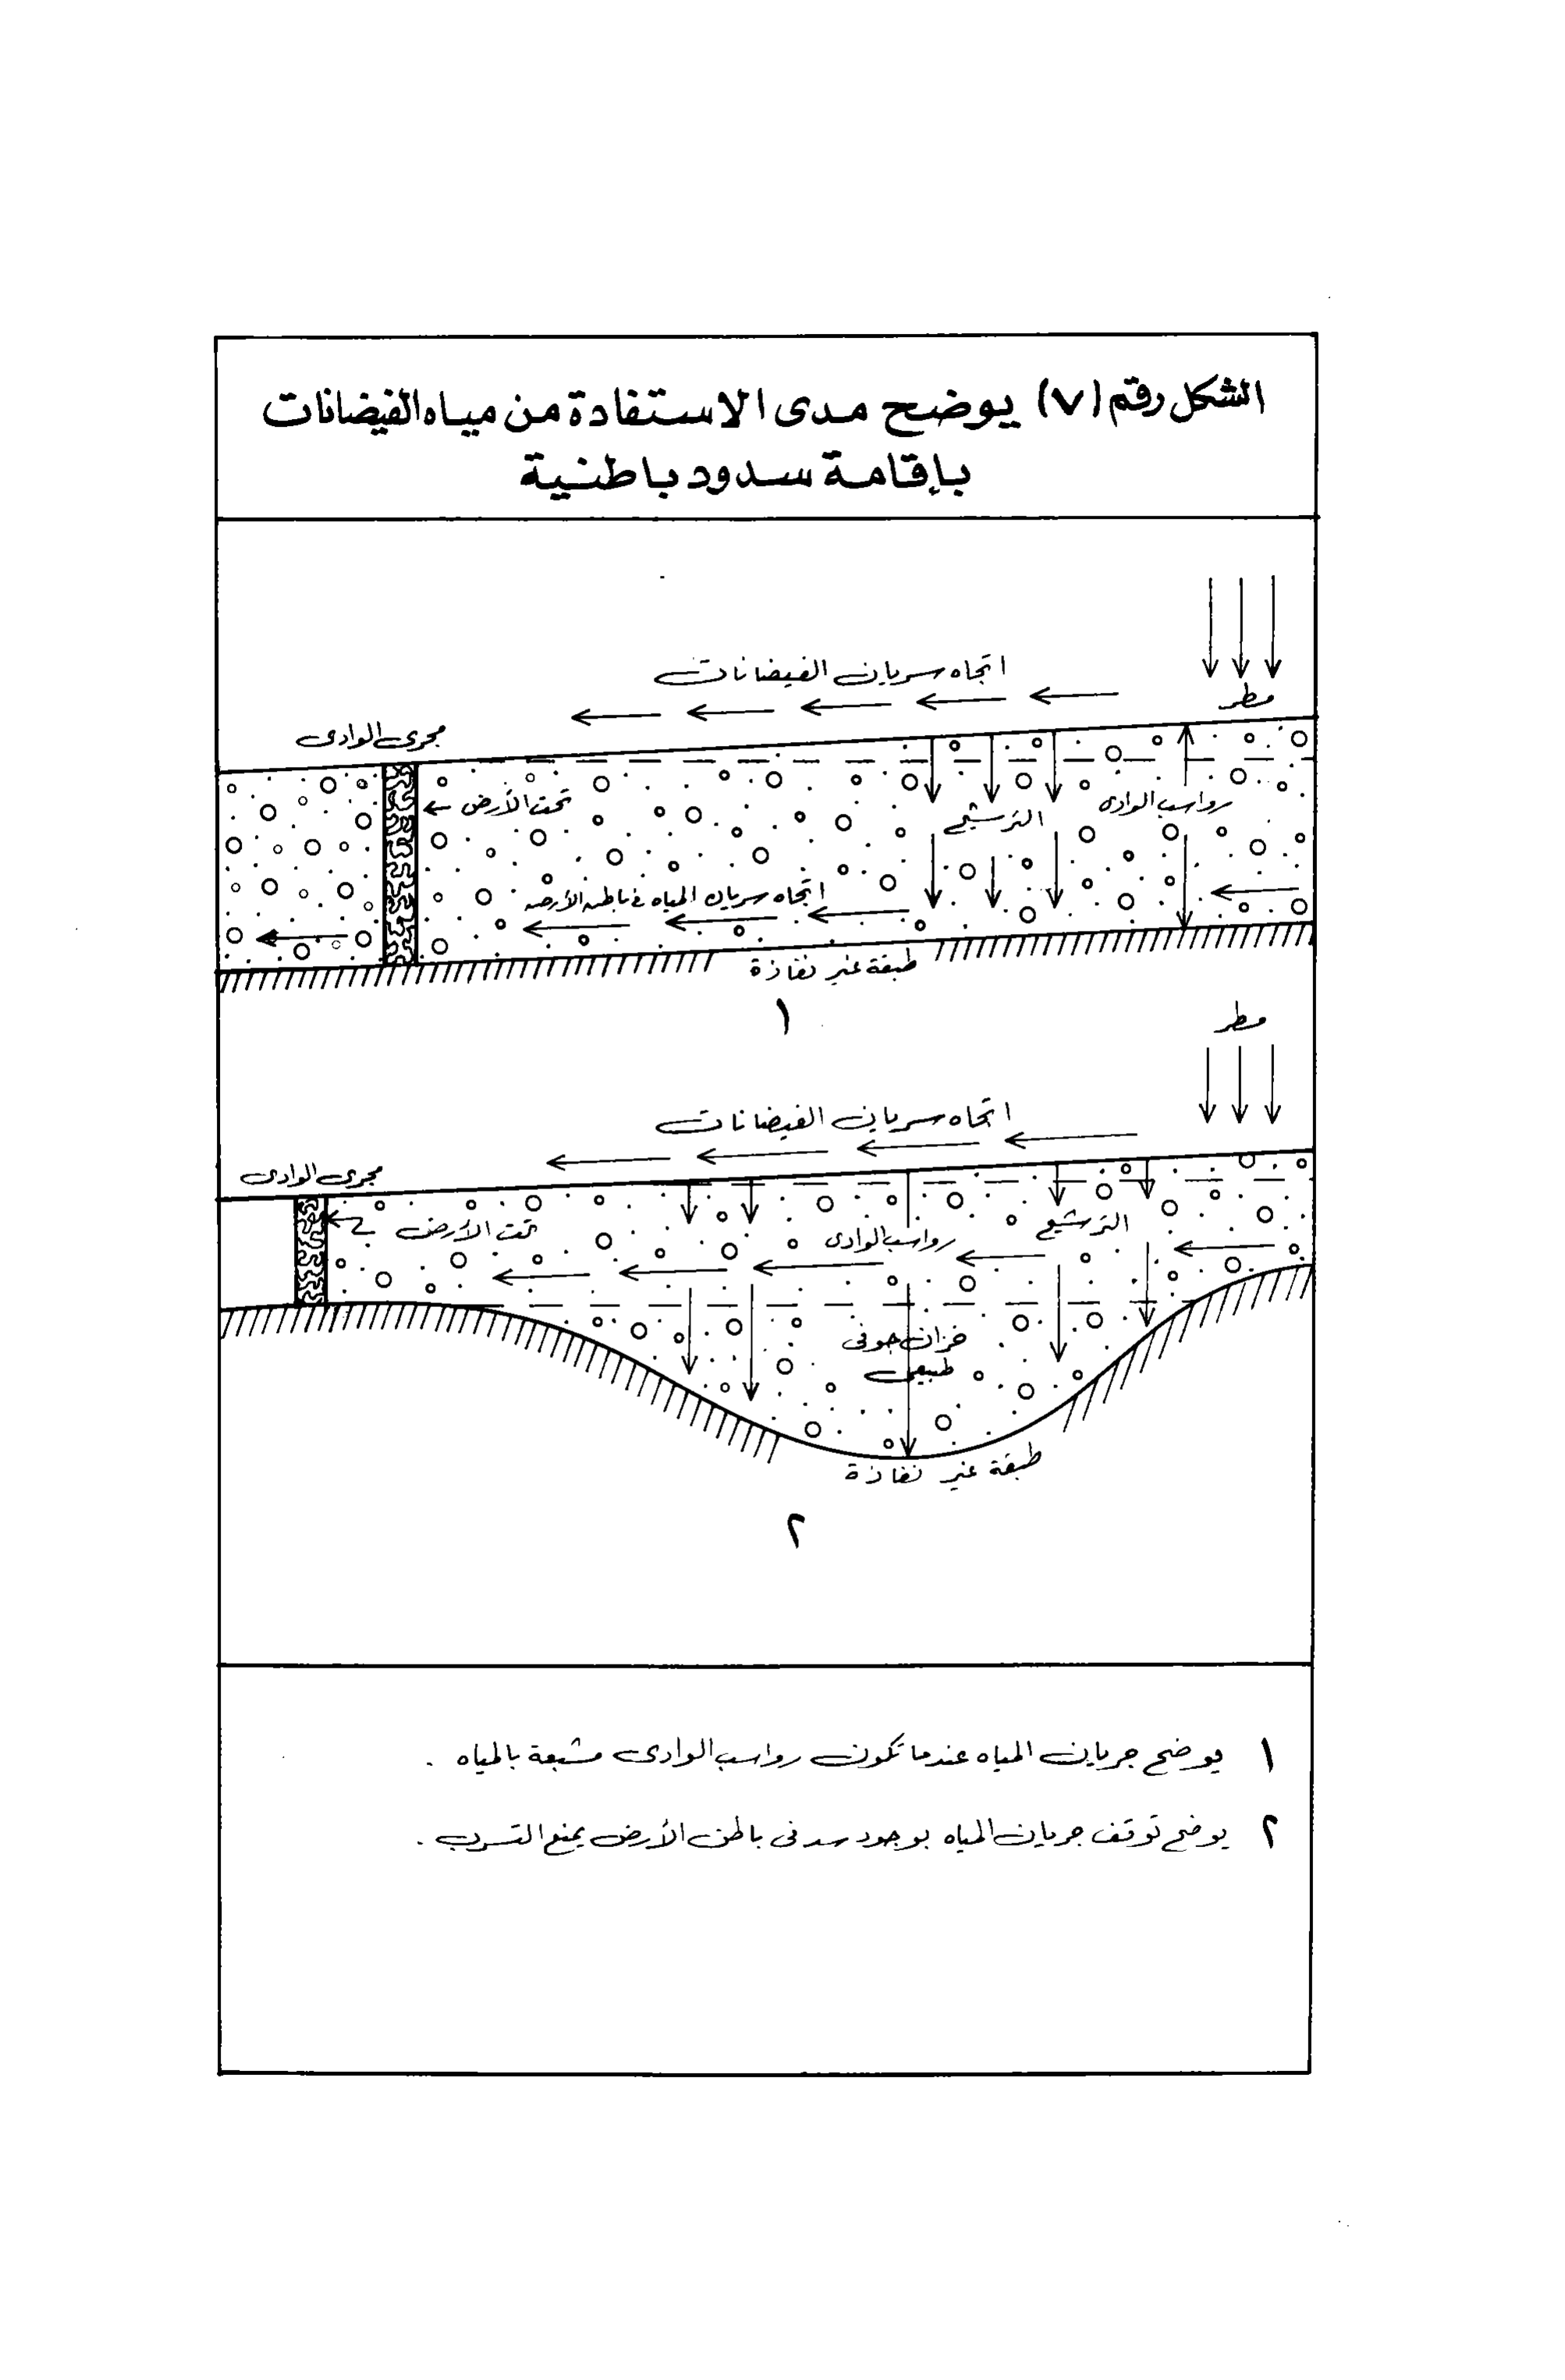 الشكل رقم (٧) يوضح مدى الاستفادة من مياه الفيضانات
بإقامة سدود باطنية
اتجاه سريان الفيضانات
مطر
مجرى الوادى
تحت الأرض
رواسب الوادى
الترشيح
اتجاه سريان المياه فى باطن الأرض
طبقة غير نفاذة
١
مطر
اتجاه سريان الفيضانات
مجرى الوادى
تحت الأرض
رواسب الوادى
الترشيح
خزان جوفى
طبيعى
طبقة غير نفاذة
٢
١ يوضح جريان المياه عندما تكون رواسب الوادى مشبعة بالمياه .
٢ يوضح توقف جريان المياه بوجود سد فى باطن الأرض يمنع التسرب .